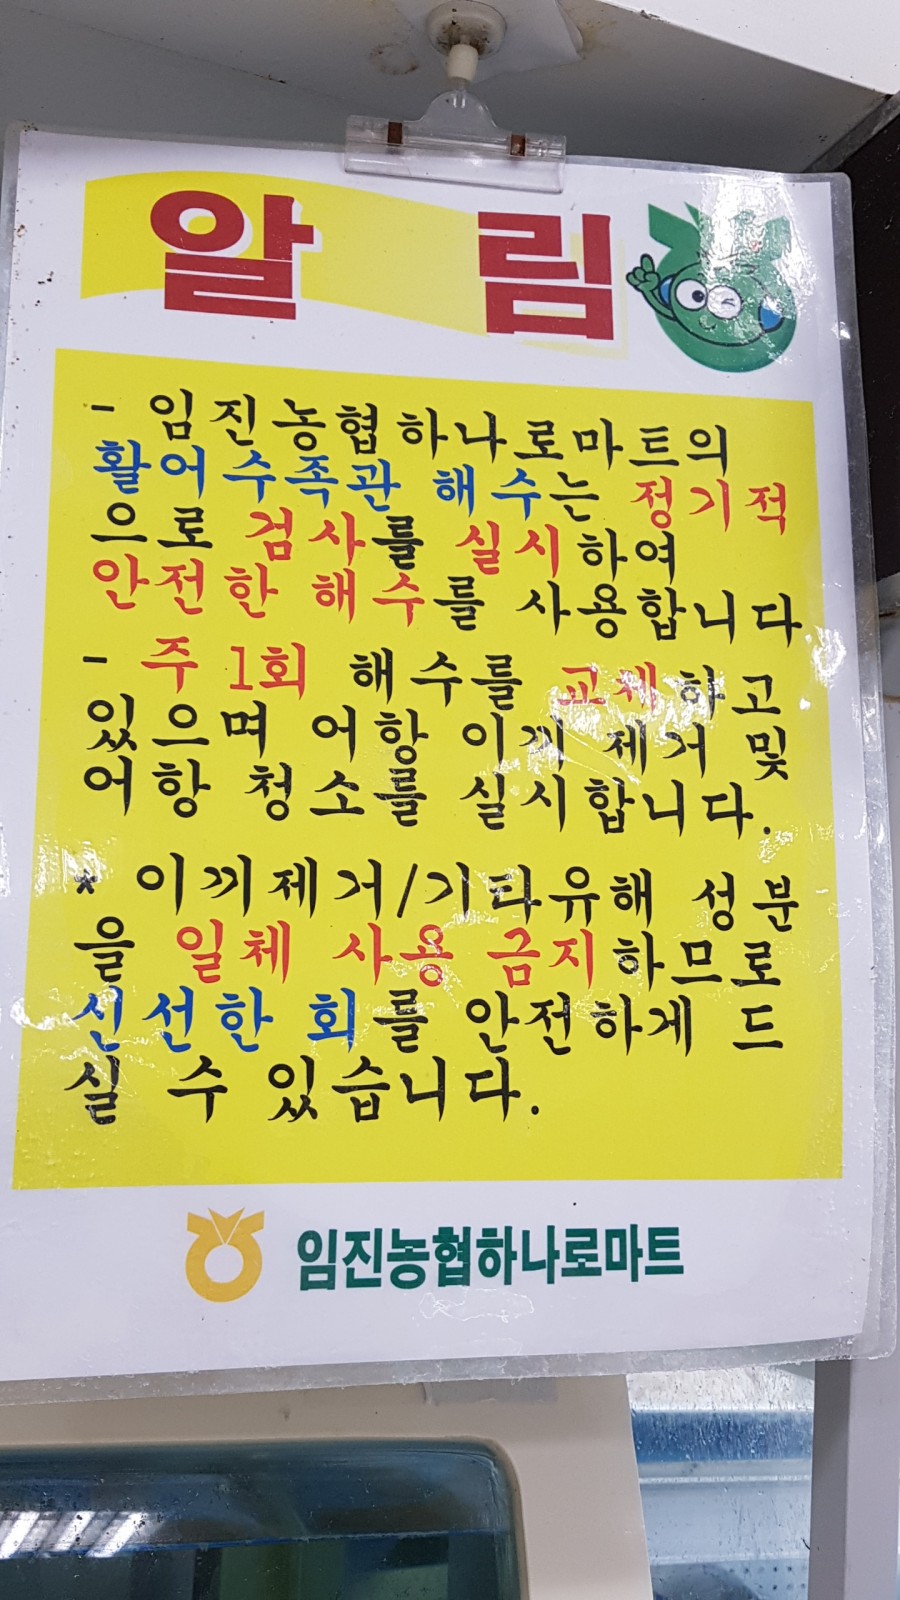 알 림
- 임진농협하나로마트의
활어수족관 해수는 정기적
으로 검사를 실시하여
안전한 해수를 사용합니다
- 주 1회 해수를 교체하고
있으며 어항 이끼 제거 및
어항 청소를 실시합니다.
* 이끼제거/기타유해 성분
을 일체 사용 금지하므로
신선한 회를 안전하게 드
실 수 있습니다.
임진농협하나로마트